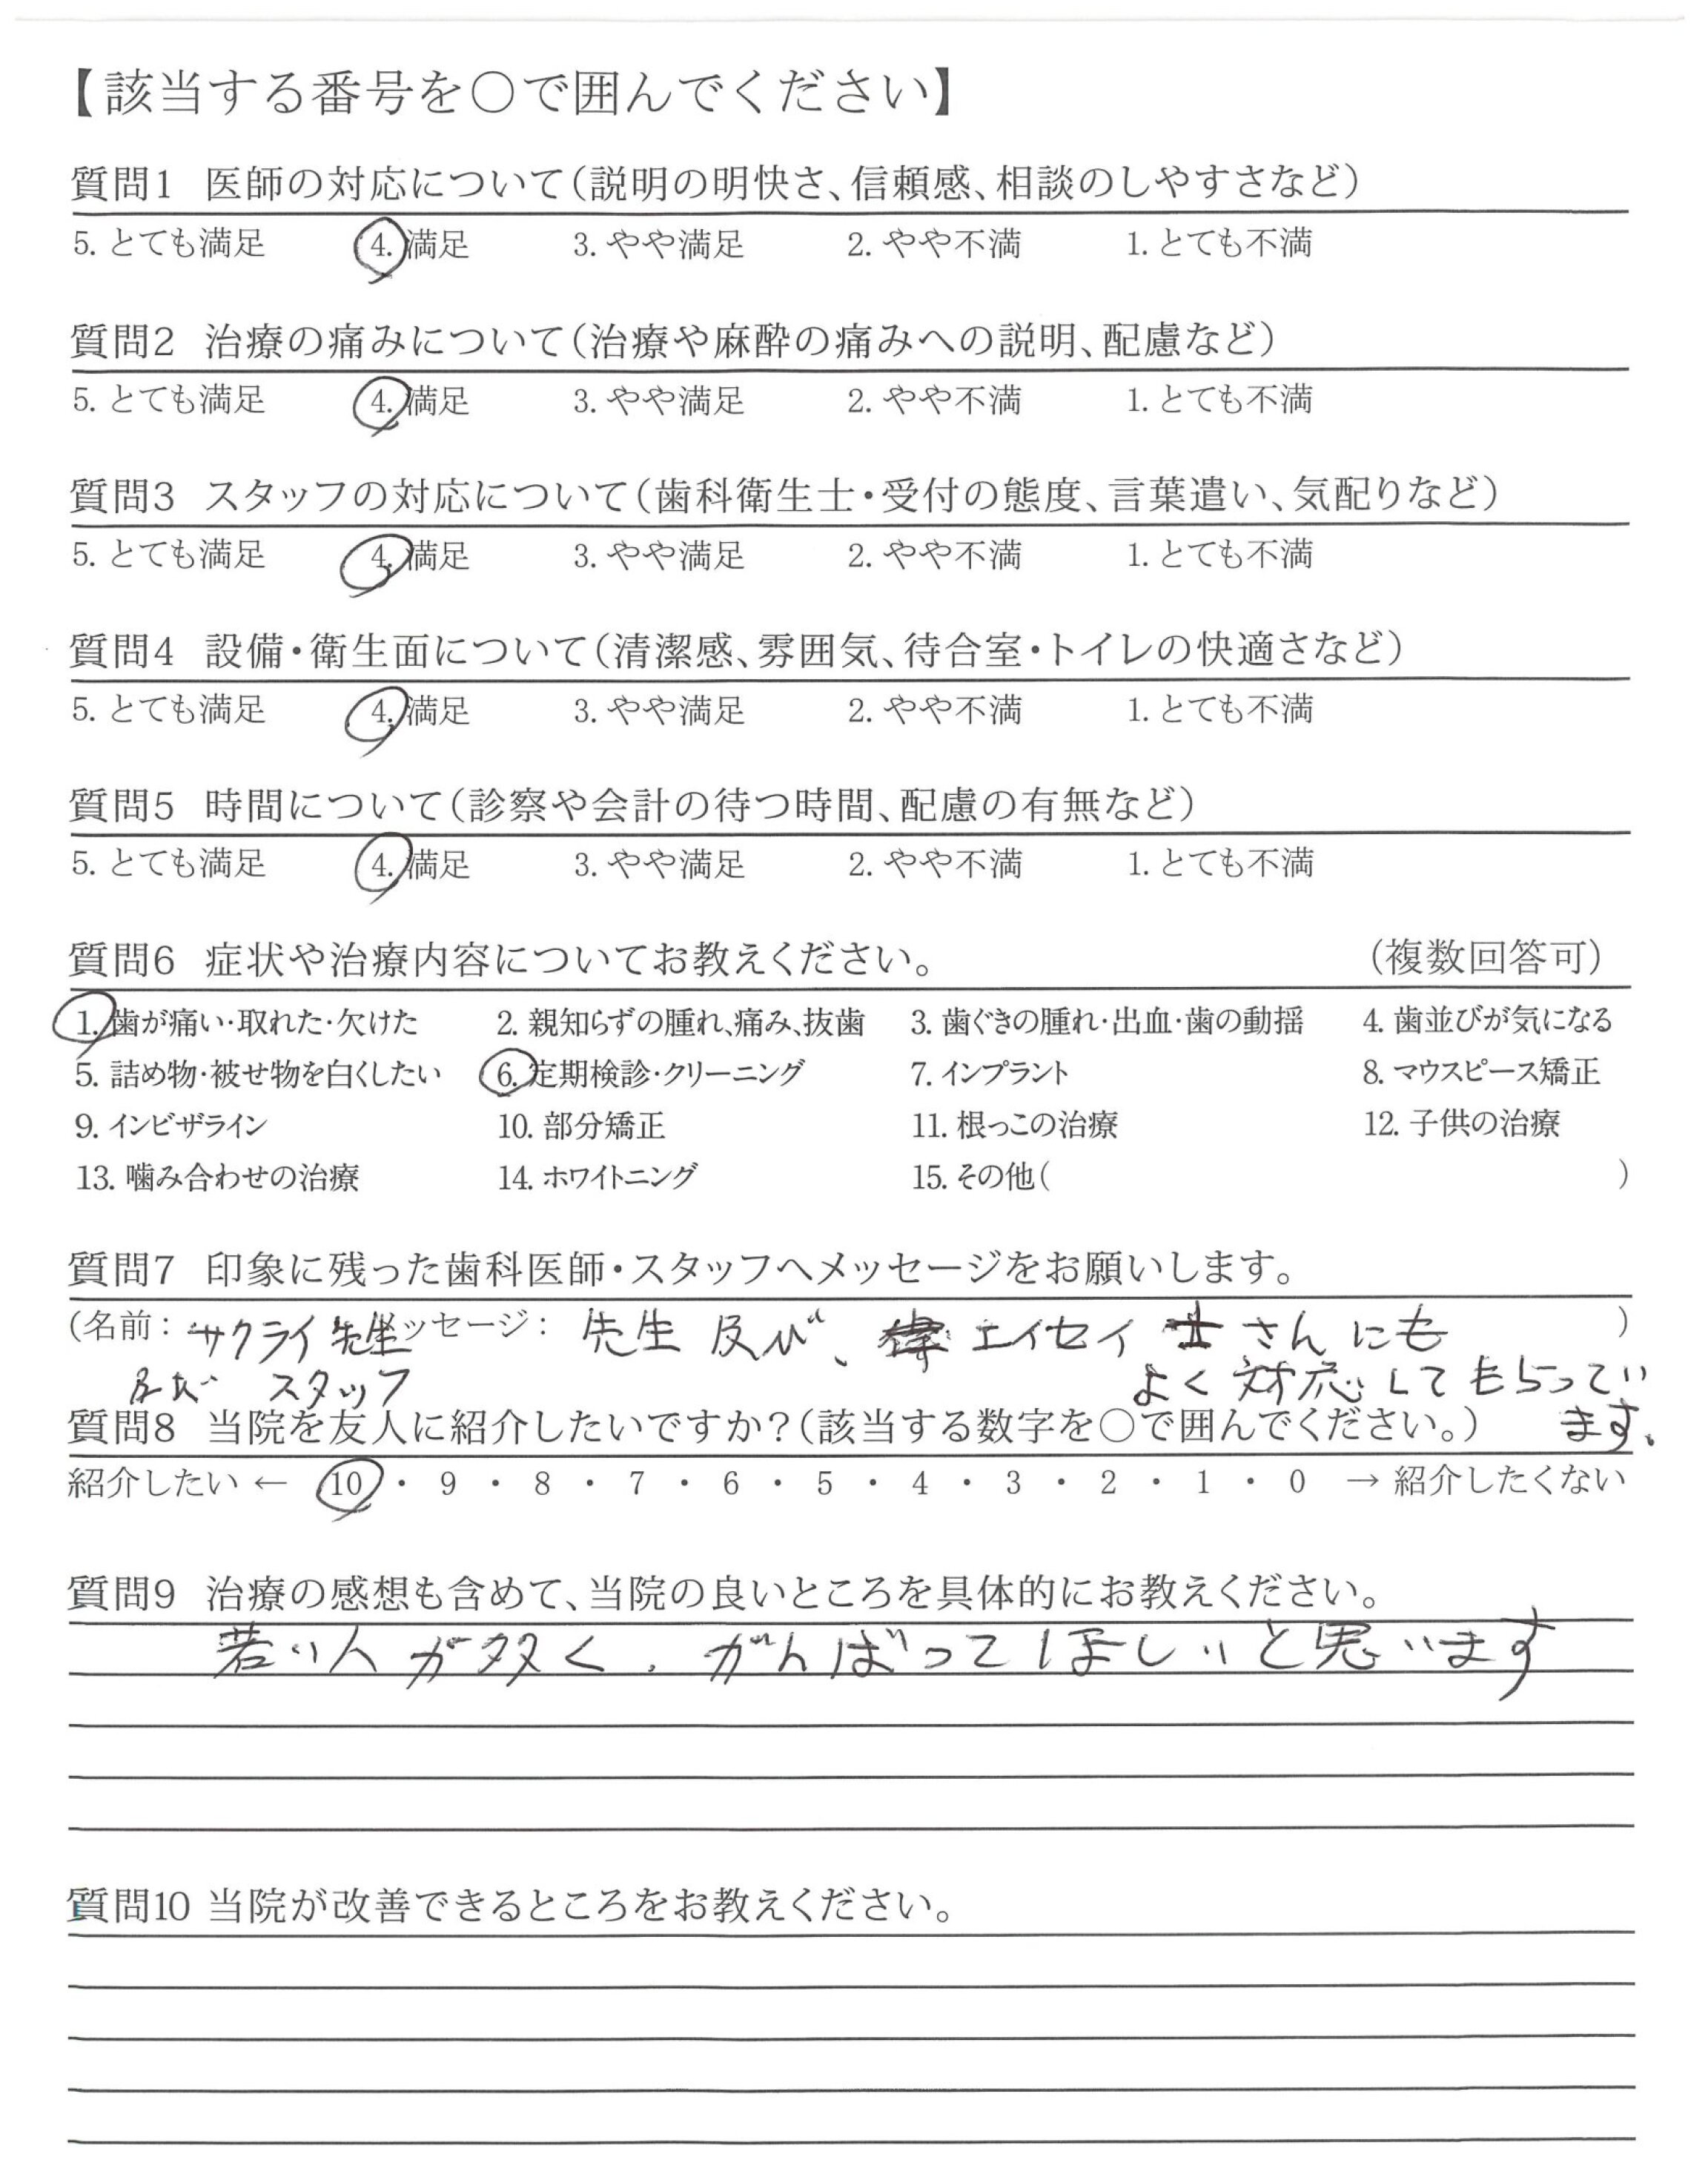 【該当する番号を○で囲んでください】
質問1 医師の対応について(説明の明快さ、信頼感、相談のしやすさなど)
5. とても満足 4. 満足 3. やや満足 2. やや不満 1. とても不満
質問2 治療の痛みについて(治療や麻酔の痛みへの説明、配慮など)
5. とても満足 4. 満足 3. やや満足 2. やや不満 1. とても不満
質問3 スタッフの対応について(歯科衛生士・受付の態度、言葉遣い、気配りなど)
5. とても満足 4. 満足 3. やや満足 2. やや不満 1. とても不満
質問4 設備・衛生面について(清潔感、雰囲気、待合室・トイレの快適さなど)
5. とても満足 4. 満足 3. やや満足 2. やや不満 1. とても不満
質問5 時間について(診察や会計の待つ時間、配慮の有無など)
5. とても満足 4. 満足 3. やや満足 2. やや不満 1. とても不満
質問6 症状や治療内容についてお教えください。 (複数回答可)
1. 歯が痛い・取れた・欠けた 2. 親知らずの腫れ、痛み、抜歯 3. 歯ぐきの腫れ・出血・歯の動揺 4. 歯並びが気になる
5. 詰め物・被せ物を白くしたい 6. 定期検診・クリーニング 7. インプラント 8. マウスピース矯正
9. インビザライン 10. 部分矯正 11. 根っこの治療 12. 子供の治療
13. 噛み合わせの治療 14. ホワイトニング 15. その他( )
質問7 印象に残った歯科医師・スタッフへメッセージをお願いします。
(名前: サクライ先生 メッセージ: 先生及び、エイセイ士さんにも )
及び スタッフ よく対応してもらってい
質問8 当院を友人に紹介したいですか?(該当する数字を○で囲んでください。) ます、
紹介したい ← 10 ・ 9 ・ 8 ・ 7 ・ 6 ・ 5 ・ 4 ・ 3 ・ 2 ・ 1 ・ 0 → 紹介したくない
質問9 治療の感想も含めて、当院の良いところを具体的にお教えください。
若い人が多く、がんばってほしいと思います
質問10 当院が改善できるところをお教えください。